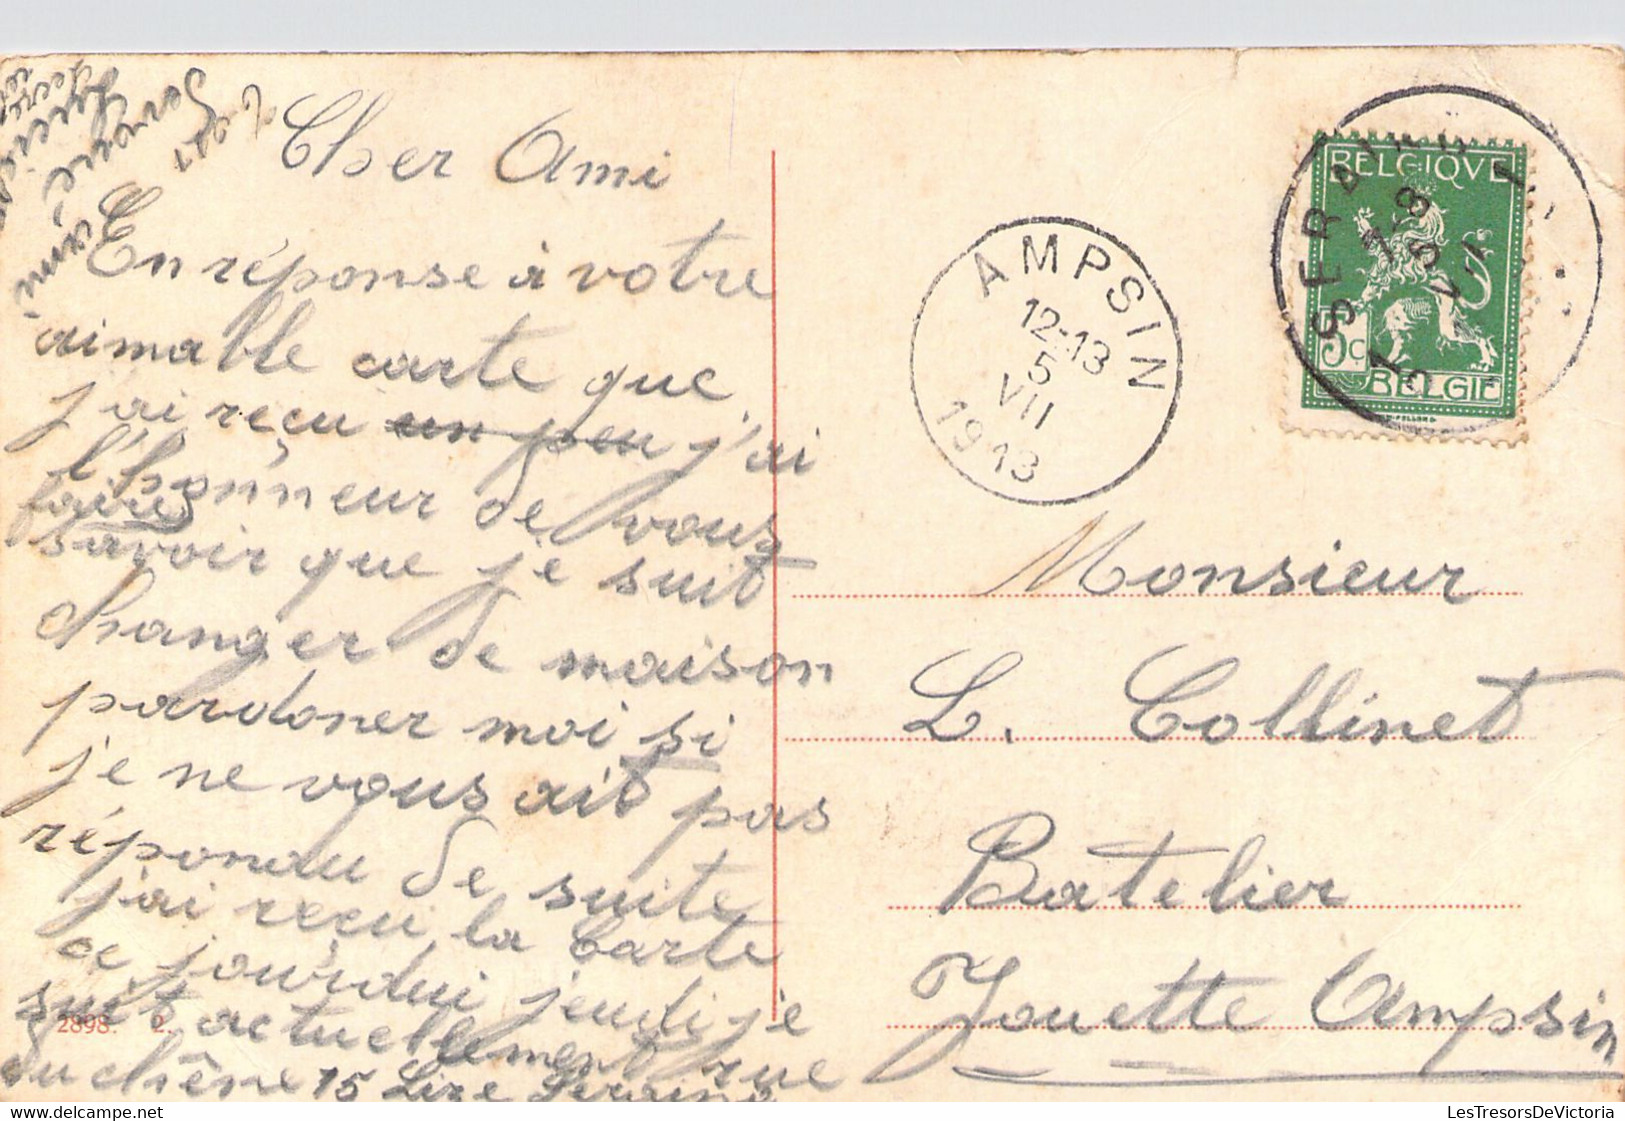 Cher Ami
En réponse à votre
aimable carte que
j'ai reçu un peu j'ai
l'honneur de vous
faire
savoir que je suit
changer de maison
pardoner moi si
je ne vous ait pas
répondu de suite
j'ai reçu la carte
ce jourdui jeudi je
suit actuellement rue
du chêne 15 Lize Seraing
votre ami
2898. 2.
AMPSIN
12-13
5
VII
1913
SERAING
7-8
5 VII
BELGIQUE
5c
BELGIË
Monsieur
L. Collinet
Batelier
Jouette Ampsin
LesTresorsDeVictoria
www.delcampe.net